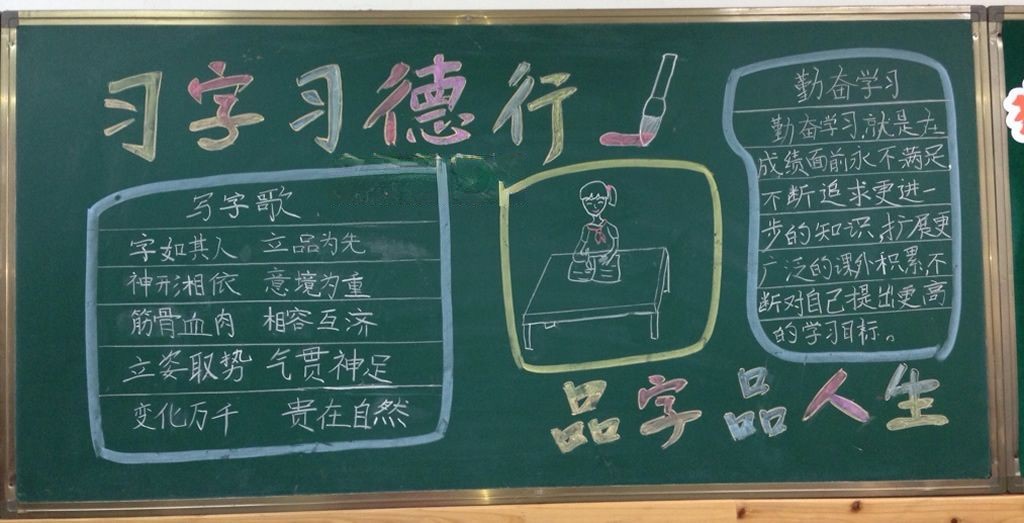 习字习德行
写字歌
字如其人 立品为先
神形相依 意境为重
筋骨血肉 相容互济
立姿取势 气贯神足
变化万千 贵在自然
勤奋学习
勤奋学习,就是在
成绩面前永不满足,
不断追求更进一
步的知识,扩展更
广泛的课外积累,不
断对自己提出更高
的学习目标。
品字品人生